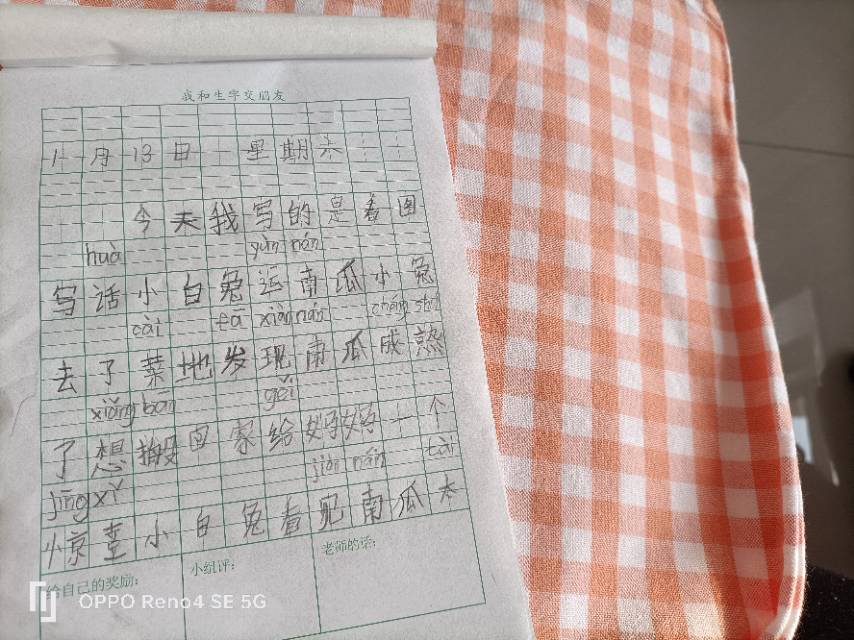 我和生字交朋友
11月13日 星期六
今天我写的是看图
huà yùn nán
写话小白兔运南瓜小兔
cài fā xiàn nán chéng shú
去了菜地发现南瓜成熟
xiǎng bān gěi
了想搬回家给妈妈一个
jīng xǐ jiàn nán tài
惊喜小白兔看见南瓜太
给自己的奖励:
小组评:
老师的话:
OPPO Reno4 SE 5G